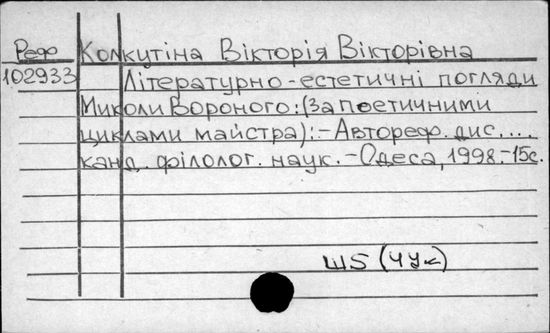 Реф Колкутіна Вікторія Вікторівна
102933 Літературно-естетичні погляди
Миколи Вороного: (За поетичними
циклами майстра):-Автореф. дис....
канд. філолог. наук.-Одеса, 1998.-15с.
Ш5(4Ук)